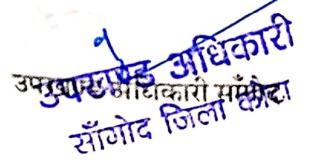 उपखण्ड अधिकारी
उपखण्ड अधिकारी साँगोद
साँगोद जिला कोटा